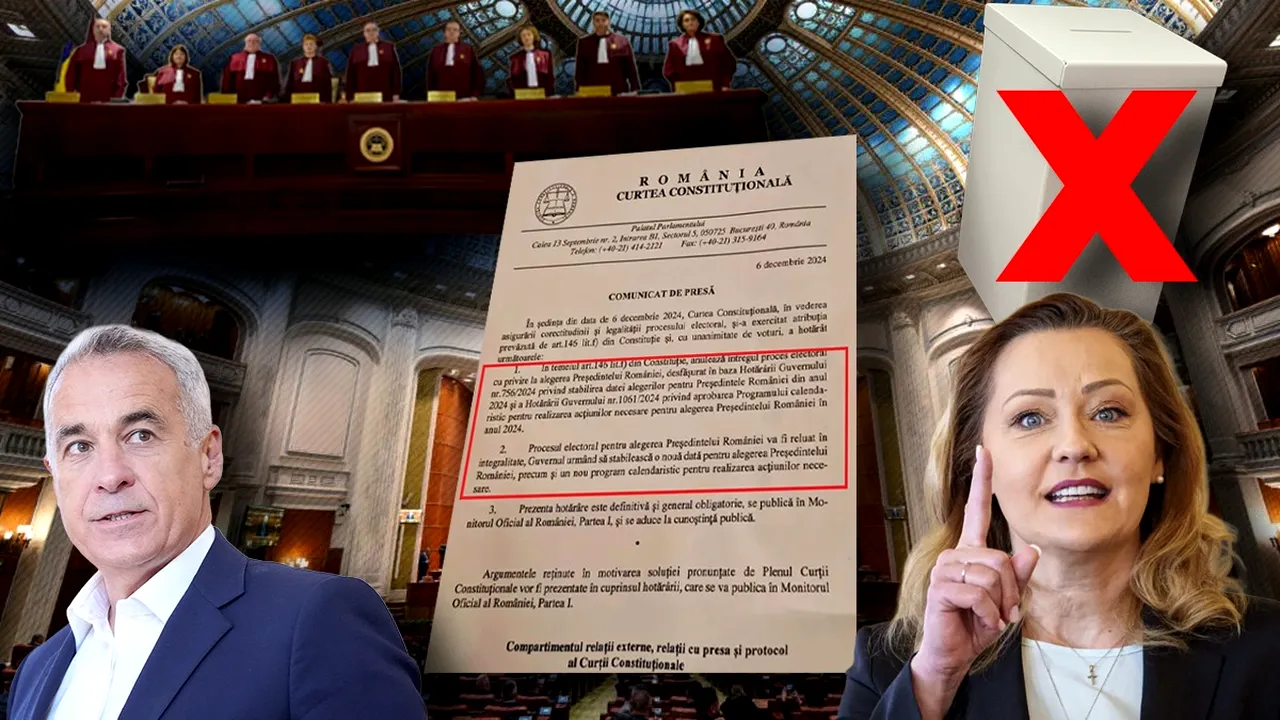 ROMÂNIA
CURTEA CONSTITUŢIONALĂ
Palatul Parlamentului
Calea 13 Septembrie nr. 2, Intrarea B1, Sectorul 5, 050725 Bucureşti 40, România
Telefon: (+40-21) 414-2121 Fax: (+40-21) 315-9164
6 decembrie 2024
COMUNICAT DE PRESĂ
În şedinţa din data de 6 decembrie 2024, Curtea Constituţională, în vederea
asigurării corectitudinii şi legalităţii procesului electoral, şi-a exercitat atribuţia
prevăzută de art.146 lit.f) din Constituţie şi, cu unanimitate de voturi, a hotărât
următoarele:
1. În temeiul art.146 lit.f) din Constituţie, anulează întregul proces electoral
cu privire la alegerea Preşedintelui României, desfăşurat în baza Hotărârii Guvernului
nr.756/2024 privind stabilirea datei alegerilor pentru Preşedintele României din anul
2024 şi a Hotărârii Guvernului nr.1061/2024 privind aprobarea Programului calenda-
ristic pentru realizarea acţiunilor necesare pentru alegerea Preşedintelui României în
anul 2024.
2. Procesul electoral pentru alegerea Preşedintelui României va fi reluat în
integralitate, Guvernul urmând să stabilească o nouă dată pentru alegerea Preşedintelui
României, precum şi un nou program calendaristic pentru realizarea acţiunilor nece-
sare.
3. Prezenta hotărâre este definitivă şi general obligatorie, se publică în Mo-
nitorul Oficial al României, Partea I, şi se aduce la cunoştinţă publică.
Argumentele reţinute în motivarea soluţiei pronunţate de Plenul Curţii
Constituţionale vor fi prezentate în cuprinsul hotărârii, care se va publica în Monitorul
Oficial al României, Partea I.
Compartimentul relaţii externe, relaţii cu presa şi protocol
al Curţii Constituţionale
X